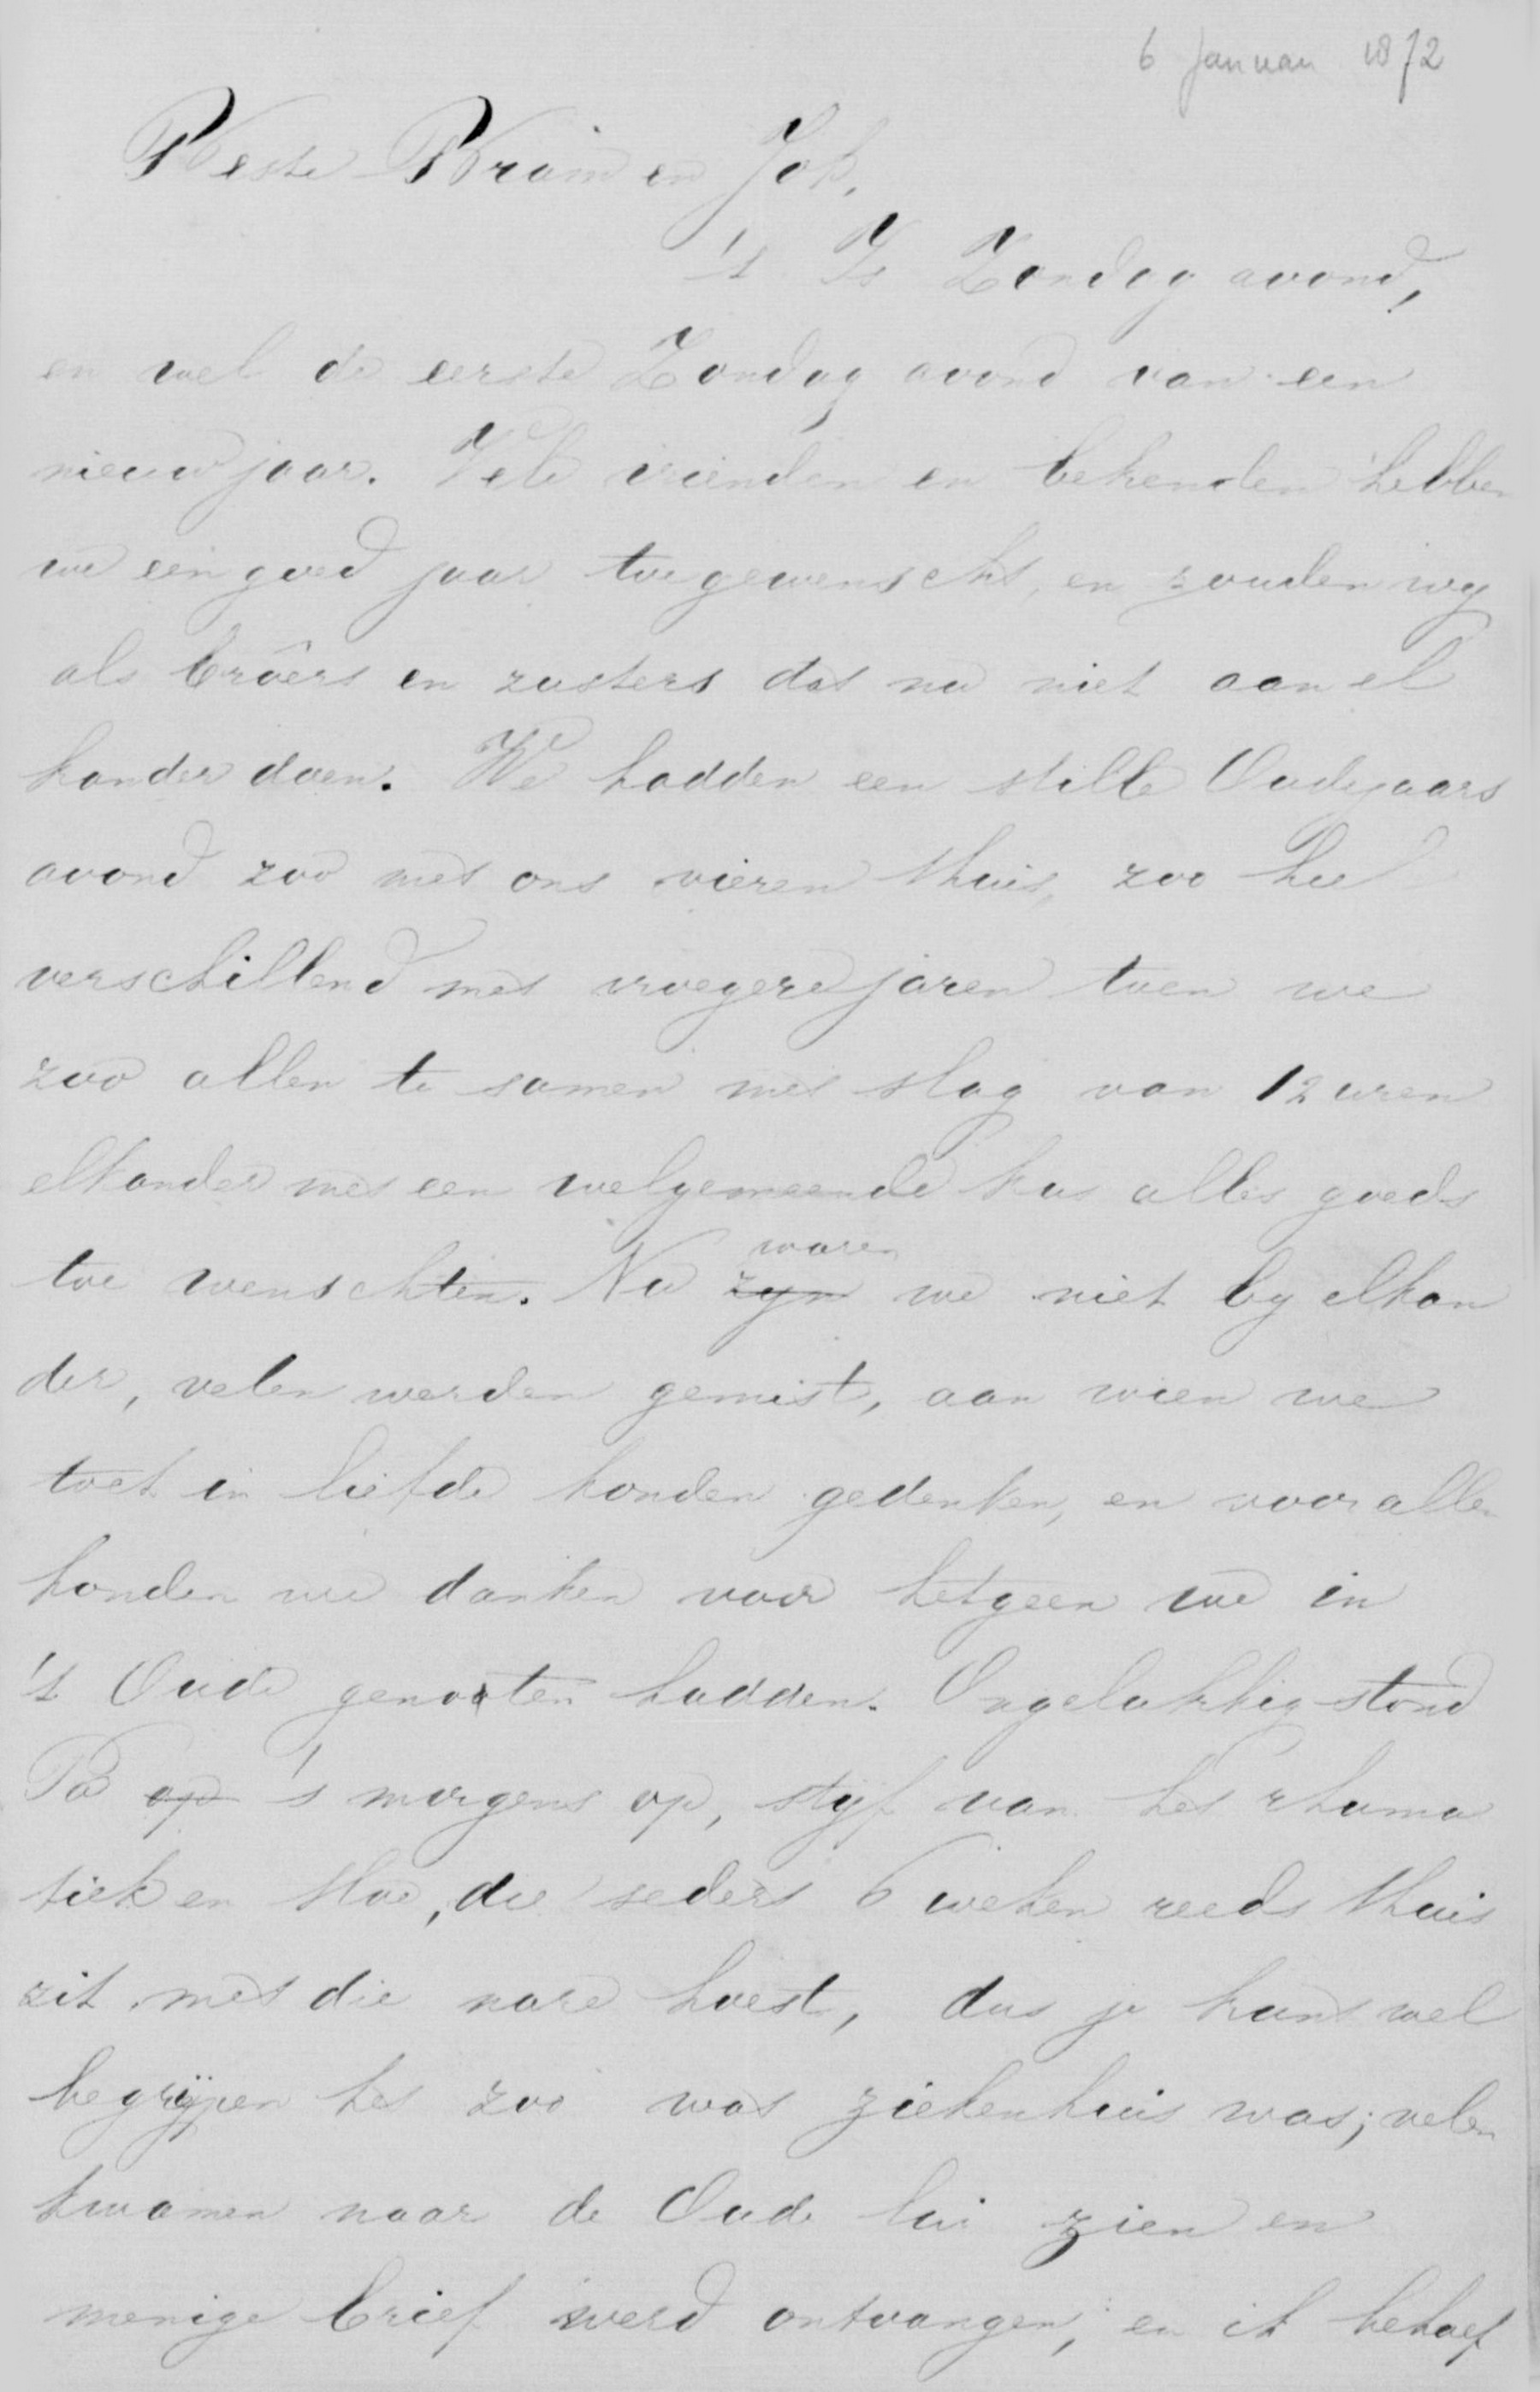 6 Januari 1872
Beste Bram en Joh,
't Is Zondag avond,
en wel de eerste Zondag avond van een
nieuw jaar. Vele vrienden en bekenden hebben
we een goed jaar toegewenscht, en zouden wy
als broêrs en zusters dat nu niet aan el
kander doen. We hadden een stille Oudejaars
avond zoo met ons vieren thuis, zoo heel
verschillend met vroegere jaren toen we
zoo allen te samen met slag van 12 uren
elkander met een welgemeende kus alles goeds
toe wenschten. Nu zyn waren we niet by elkan
der, velen werden gemist, aan wien we
toch in liefde konden gedenken, en voor allen
konden we danken voor hetgeen we in
't Oude genoten hadden. Ongelukkig stond
Pa op 's morgens op, styf van het rhuma
tiek en Moe, die seders 6 weken reeds thuis
zit met die nare hoest, dus je kunt wel
begrijpen het zoo wat ziekenhuis was; velen
kwamen naar de Oude lui zien en
menige brief werd ontvangen, en ik behoef